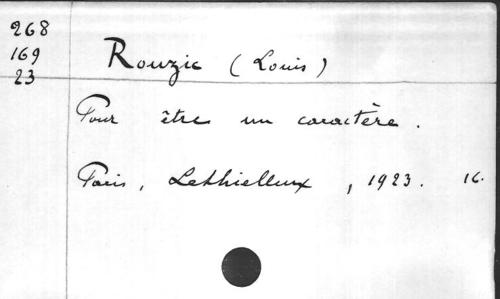 268
169
23
Rouzic (Louis)
Pour être un caractère.
Paris, Lethielleux, 1923. 16.